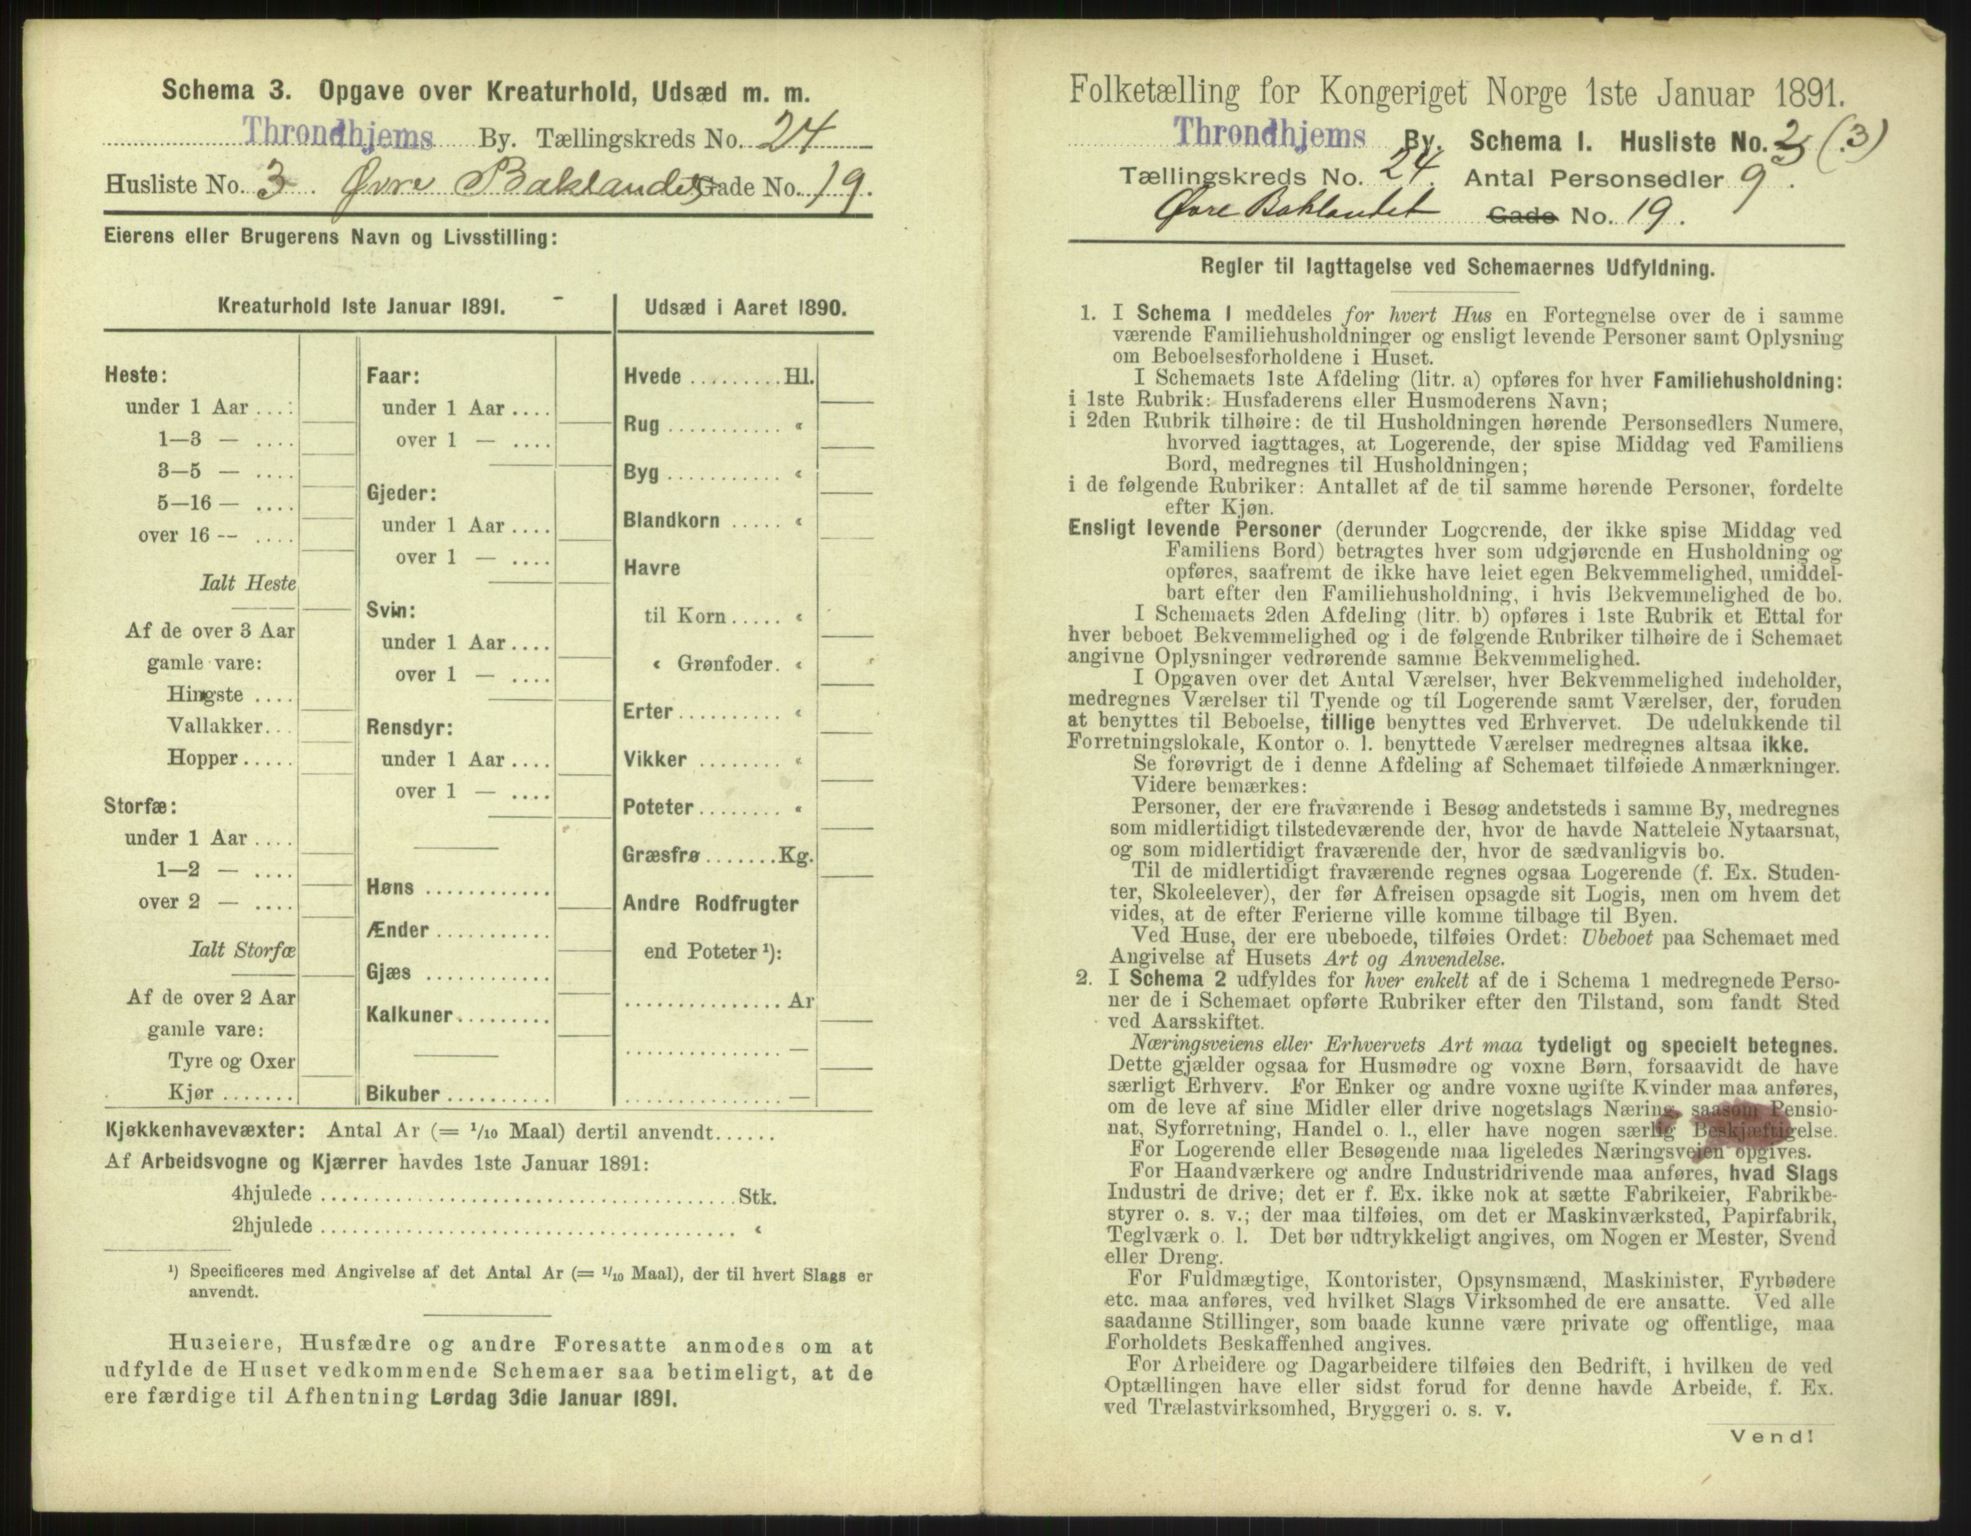 Schema 3. Opgave over Kreaturhold, Udsæd m. m.
Throndhjems By. Tællingskreds No. 24
Husliste No. 3. Øvre Baklandet Gade No. 19.
Eierens eller Brugerens Navn og Livsstilling:
Kreaturhold 1ste Januar 1891.
Heste:
under 1 Aar ....
1—3 — ....
3—5 — ....
5—16 — ....
over 16 — ....
Ialt Heste
Af de over 3 Aar
gamle vare:
Hingste ....
Vallakker...
Hopper.....
Storfæ:
under 1 Aar ....
1—2 — ....
over 2 — ....
Ialt Storfæ
Af de over 2 Aar
gamle vare:
Tyre og Oxer
Kjør .......
Faar:
under 1 Aar ....
over 1 — ....
Gjeder:
under 1 Aar ....
over 1 — ....
Svin:
under 1 Aar ....
over 1 — ....
Rensdyr:
under 1 Aar ....
over 1 — ....
Høns ............
Ænder ...........
Gjæs ............
Kalkuner.........
Bikuber ..........
Udsæd i Aaret 1890.
Hvede .........Hl.
Rug ........... «
Byg ........... «
Blandkorn ..... «
Havre
til Korn..... «
« Grønfoder. «
Erter.......... «
Vikker ........ «
Poteter........ «
Græsfrø.......Kg.
Andre Rodfrugter
end Poteter ¹):
...............Ar
...............—
...............—
Kjøkkenhavevæxter: Antal Ar (= 1/10 Maal) dertil anvendt......
Af Arbeidsvogne og Kjærrer havdes 1ste Januar 1891:
4hjulede ......................................Stk.
2hjulede ...................................... «
¹) Specificeres med Angivelse af det Antal Ar (= 1/10 Maal), der til hvert Slags er
anvendt.
Huseiere, Husfædre og andre Foresatte anmodes om at
udfylde de Huset vedkommende Schemaer saa betimeligt, at de
ere færdige til Afhentning Lørdag 3die Januar 1891.
Folketælling for Kongeriget Norge 1ste Januar 1891.
Throndhjems By. Schema I. Husliste No. 3 (3)
Tællingskreds No. 24. Antal Personsedler 9.
Øvre Baklandet Gade No. 19.
Regler til Iagttagelse ved Schemaernes Udfyldning.
1. I Schema I meddeles for hvert Hus en Fortegnelse over de i samme
værende Familiehusholdninger og ensligt levende Personer samt Oplysning
om Beboelsesforholdene i Huset.
I Schemaets 1ste Afdeling (litr. a) opføres for hver Familiehusholdning:
i 1ste Rubrik: Husfaderens eller Husmoderens Navn;
i 2den Rubrik tilhøire: de til Husholdningen hørende Personsedlers Numere,
hvorved iagttages, at Logerende, der spise Middag ved Familiens
Bord, medregnes til Husholdningen;
i de følgende Rubriker: Antallet af de til samme hørende Personer, fordelte
efter Kjøn.
Ensligt levende Personer (derunder Logerende, der ikke spise Middag ved
Familiens Bord) betragtes hver som udgjørende en Husholdning og
opføres, saafremt de ikke have leiet egen Bekvemmelighed, umiddel-
bart efter den Familiehusholdning, i hvis Bekvemmelighed de bo.
I Schemaets 2den Afdeling (litr. b) opføres i 1ste Rubrik et Ettal for
hver beboet Bekvemmelighed og i de følgende Rubriker tilhøire de i Schemaet
angivne Oplysninger vedrørende samme Bekvemmelighed.
I Opgaven over det Antal Værelser, hver Bekvemmelighed indeholder,
medregnes Værelser til Tyende og til Logerende samt Værelser, der, foruden
at benyttes til Beboelse, tillige benyttes ved Erhvervet. De udelukkende til
Forretningslokale, Kontor o. l. benyttede Værelser medregnes altsaa ikke.
Se forøvrigt de i denne Afdeling af Schemaet tilføiede Anmærkninger.
Videre bemærkes:
Personer, der ere fraværende i Besøg andetsteds i samme By, medregnes
som midlertidigt tilstedeværende der, hvor de havde Natteleie Nytaarsnat,
og som midlertidigt fraværende der, hvor de sædvanligvis bo.
Til de midlertidigt fraværende regnes ogsaa Logerende (f. Ex. Studen-
ter, Skoleelever), der før Afreisen opsagde sit Logis, men om hvem det
vides, at de efter Ferierne ville komme tilbage til Byen.
Ved Huse, der ere ubeboede, tilføies Ordet: Ubeboet paa Schemaet med
Angivelse af Husets Art og Anvendelse.
2. I Schema 2 udfyldes for hver enkelt af de i Schema 1 medregnede Perso-
ner de i Schemaet opførte Rubriker efter den Tilstand, som fandt Sted
ved Aarsskiftet.
Næringsveiens eller Erhvervets Art maa tydeligt og specielt betegnes.
Dette gjælder ogsaa for Husmødre og voxne Børn, forsaavidt de have
særligt Erhverv. For Enker og andre voxne ugifte Kvinder maa anføres,
om de leve af sine Midler eller drive nogetslags Næring, saasom Pensio-
nat, Syforretning, Handel o. l., eller have nogen særlig Beskjæftigelse.
For Logerende eller Besøgende maa ligeledes Næringsveien opgives.
For Haandværkere og andre Industridrivende maa anføres, hvad Slags
Industri de drive; det er f. Ex. ikke nok at sætte Fabrikeier, Fabrikbe-
styrer o. s. v.; der maa tilføies, om det er Maskinværksted, Papirfabrik,
Teglværk o. l. Det bør udtrykkeligt angives, om Nogen er Mester, Svend
eller Dreng.
For Fuldmægtige, Kontorister, Opsynsmænd, Maskinister, Fyrbødere
etc. maa anføres, ved hvilket Slags Virksomhed de ere ansatte. Ved alle
saadanne Stillinger, som baade kunne være private og offentlige, maa
Forholdets Beskaffenhed angives.
For Arbeidere og Dagarbeidere tilføies den Bedrift, i hvilken de ved
Optællingen have eller sidst forud for denne havde Arbeide, f. Ex.
ved Trælastvirksomhed, Bryggeri o. s. v.
Vend!